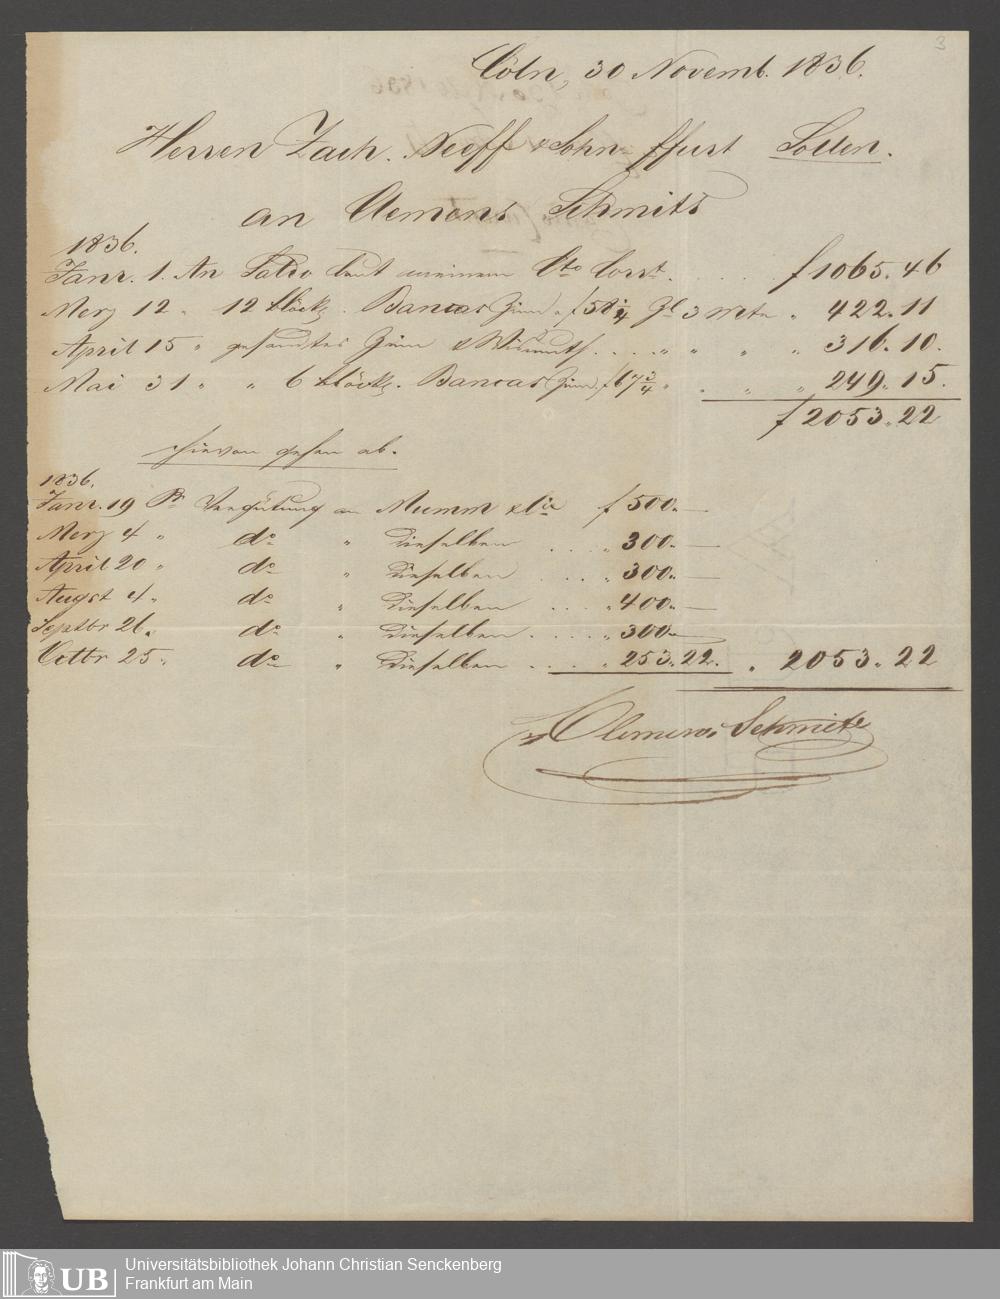 3
Cöln, 30 Novemb. 1836.
Herren Zach. Neeff & Sohn ffurt Sollen.
an Clemens Schmits
1836.
Janr. 1. An Saldo laut meinem Cto Corrt. . . . f 1065. 46
Merz 12 " 12 blöck. Bancas Zinn a f 58 1/4 3 mte " 422. 11
April 15 " gesandtes Zinn & Wismuth . . . . " " " " 316. 10.
Mai 31 " " 6 blöck. Bancas Zinn f 67 3/4 " " " " 249. 15.
f 2053. 22
hievon gehen ab.
1836.
Janr. 19 Pr Vergütung an Mumm & Cie f 500. —
Merz 4 " do " dieselben . . . " 300. —
April 20 " do " dieselben . . . " 300. —
Augst 4 " do " dieselben . . . " 400. —
Septbr 26 " do " dieselben . . . " 300. —
Octbr 25 " do " dieselben . . . " 253. 22. " 2053. 22
Clemens Schmits
UB
Universitätsbibliothek Johann Christian Senckenberg
Frankfurt am Main